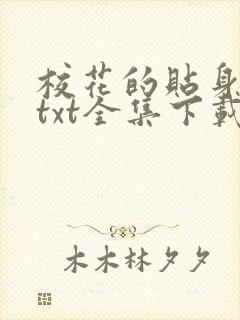 校花的貼身
txt全集下載
木木林夕夕